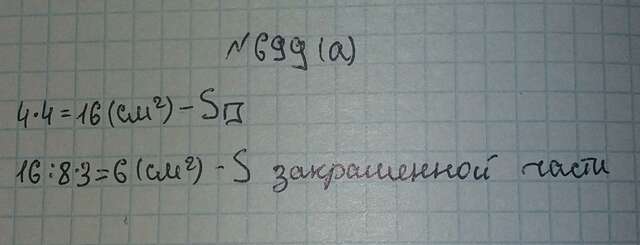 №699(а)
4·4=16(см²)-S□
16:8·3=6(см²)-S закрашенной части